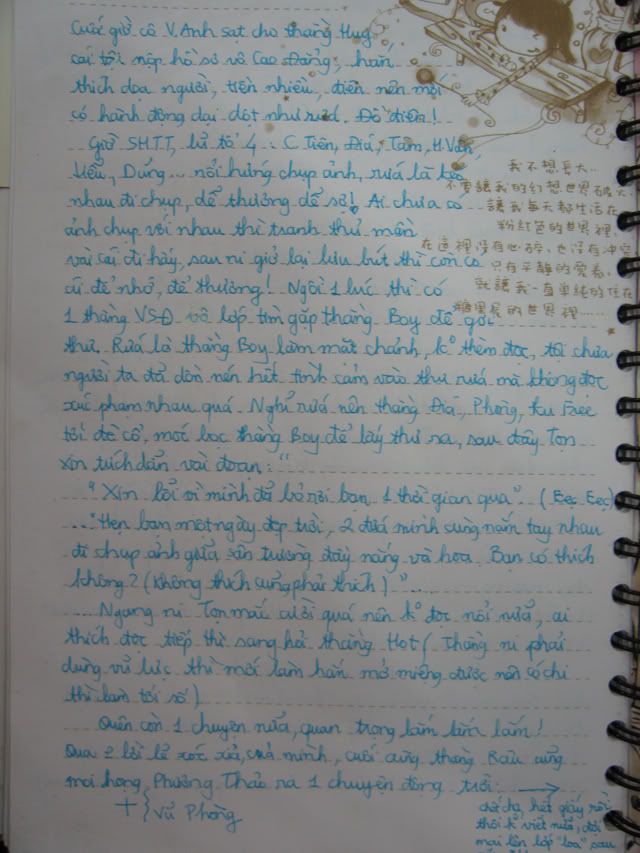 Cuối giờ cô V.Anh sạt cho thằng Huy
cái tội nộp hồ sơ vô Cao Đẳng, hắn
thích dọa người, tiền nhiều, điên nên mới
có hành động dại dột như rứa. Đồ điên!
Giờ SHTT, lũ tổ 4: C Tiên, Đá, Tâm, H.Vân,
Liễu, Dũng... nổi hứng chụp ảnh, rứa là kéo
nhau đi chụp, dễ thương dễ sợ! Ai chưa có
ảnh chụp với nhau thì tranh thủ mần
vài cái đi hấy, sau ni giở lại lưu bút thì còn có
cái để nhớ, để thương! Ngồi 1 lúc thì có
1 thằng VSĐ vô lớp tìm gặp thằng Boy để gởi
thư. Rứa là thằng Boy làm mặt chảnh, ko thèm đọc, tội chưa
người ta đã dồn nén hết tình cảm vào thư rứa mà không đọc
xúc phạm nhau quá. Nghĩ rứa nên thằng Đá, Phòng, ku Free
tới đè cổ, móc bọc thằng Boy để lấy thư ra, sau đây Tọn
xin trích dẫn vài đoạn: "
" Xin lỗi vì mình đã bỏ rơi bạn 1 thời gian qua". (Eẹc Eẹc)
... "Hẹn bạn một ngày đẹp trời, 2 đứa mình sung nắm tay nhau
đi chụp ảnh giữa sân trường đầy nắng và hoa. Bạn có thích
không? (Không thích cũng phải thích)"...
.... Ngang ni Tọn mắc cười quá nên ko đọc nổi nữa, ai
thích đọc tiếp thì sang hỏi thằng Hot (Thằng ni phải
dùng vũ lực thì mới làm hắn mở miệng được nên có chi
thì làm tới số)
Quên còn 1 chuyện nữa, quan trọng lắm lắm lắm!
Qua 2 lời lẽ xóc xỉa của mình, cuối cùng thằng Râu cũng
moi họng Phương Thảo ra 1 chuyện động trời: →
+ } Vũ Phòng
chết cha, hết giấy rồi
thôi k viết nữa, đợi
mai lên lớp "loa" sau
我不想長大...
不要讓我的幻想世界破灭
讓我每天都生活在
粉紅色的世界裡,
在這裡沒有心碎, 也沒有沖突
只有平靜的愛着,
就讓我一直單純的住在
糖果屋的世界裡......